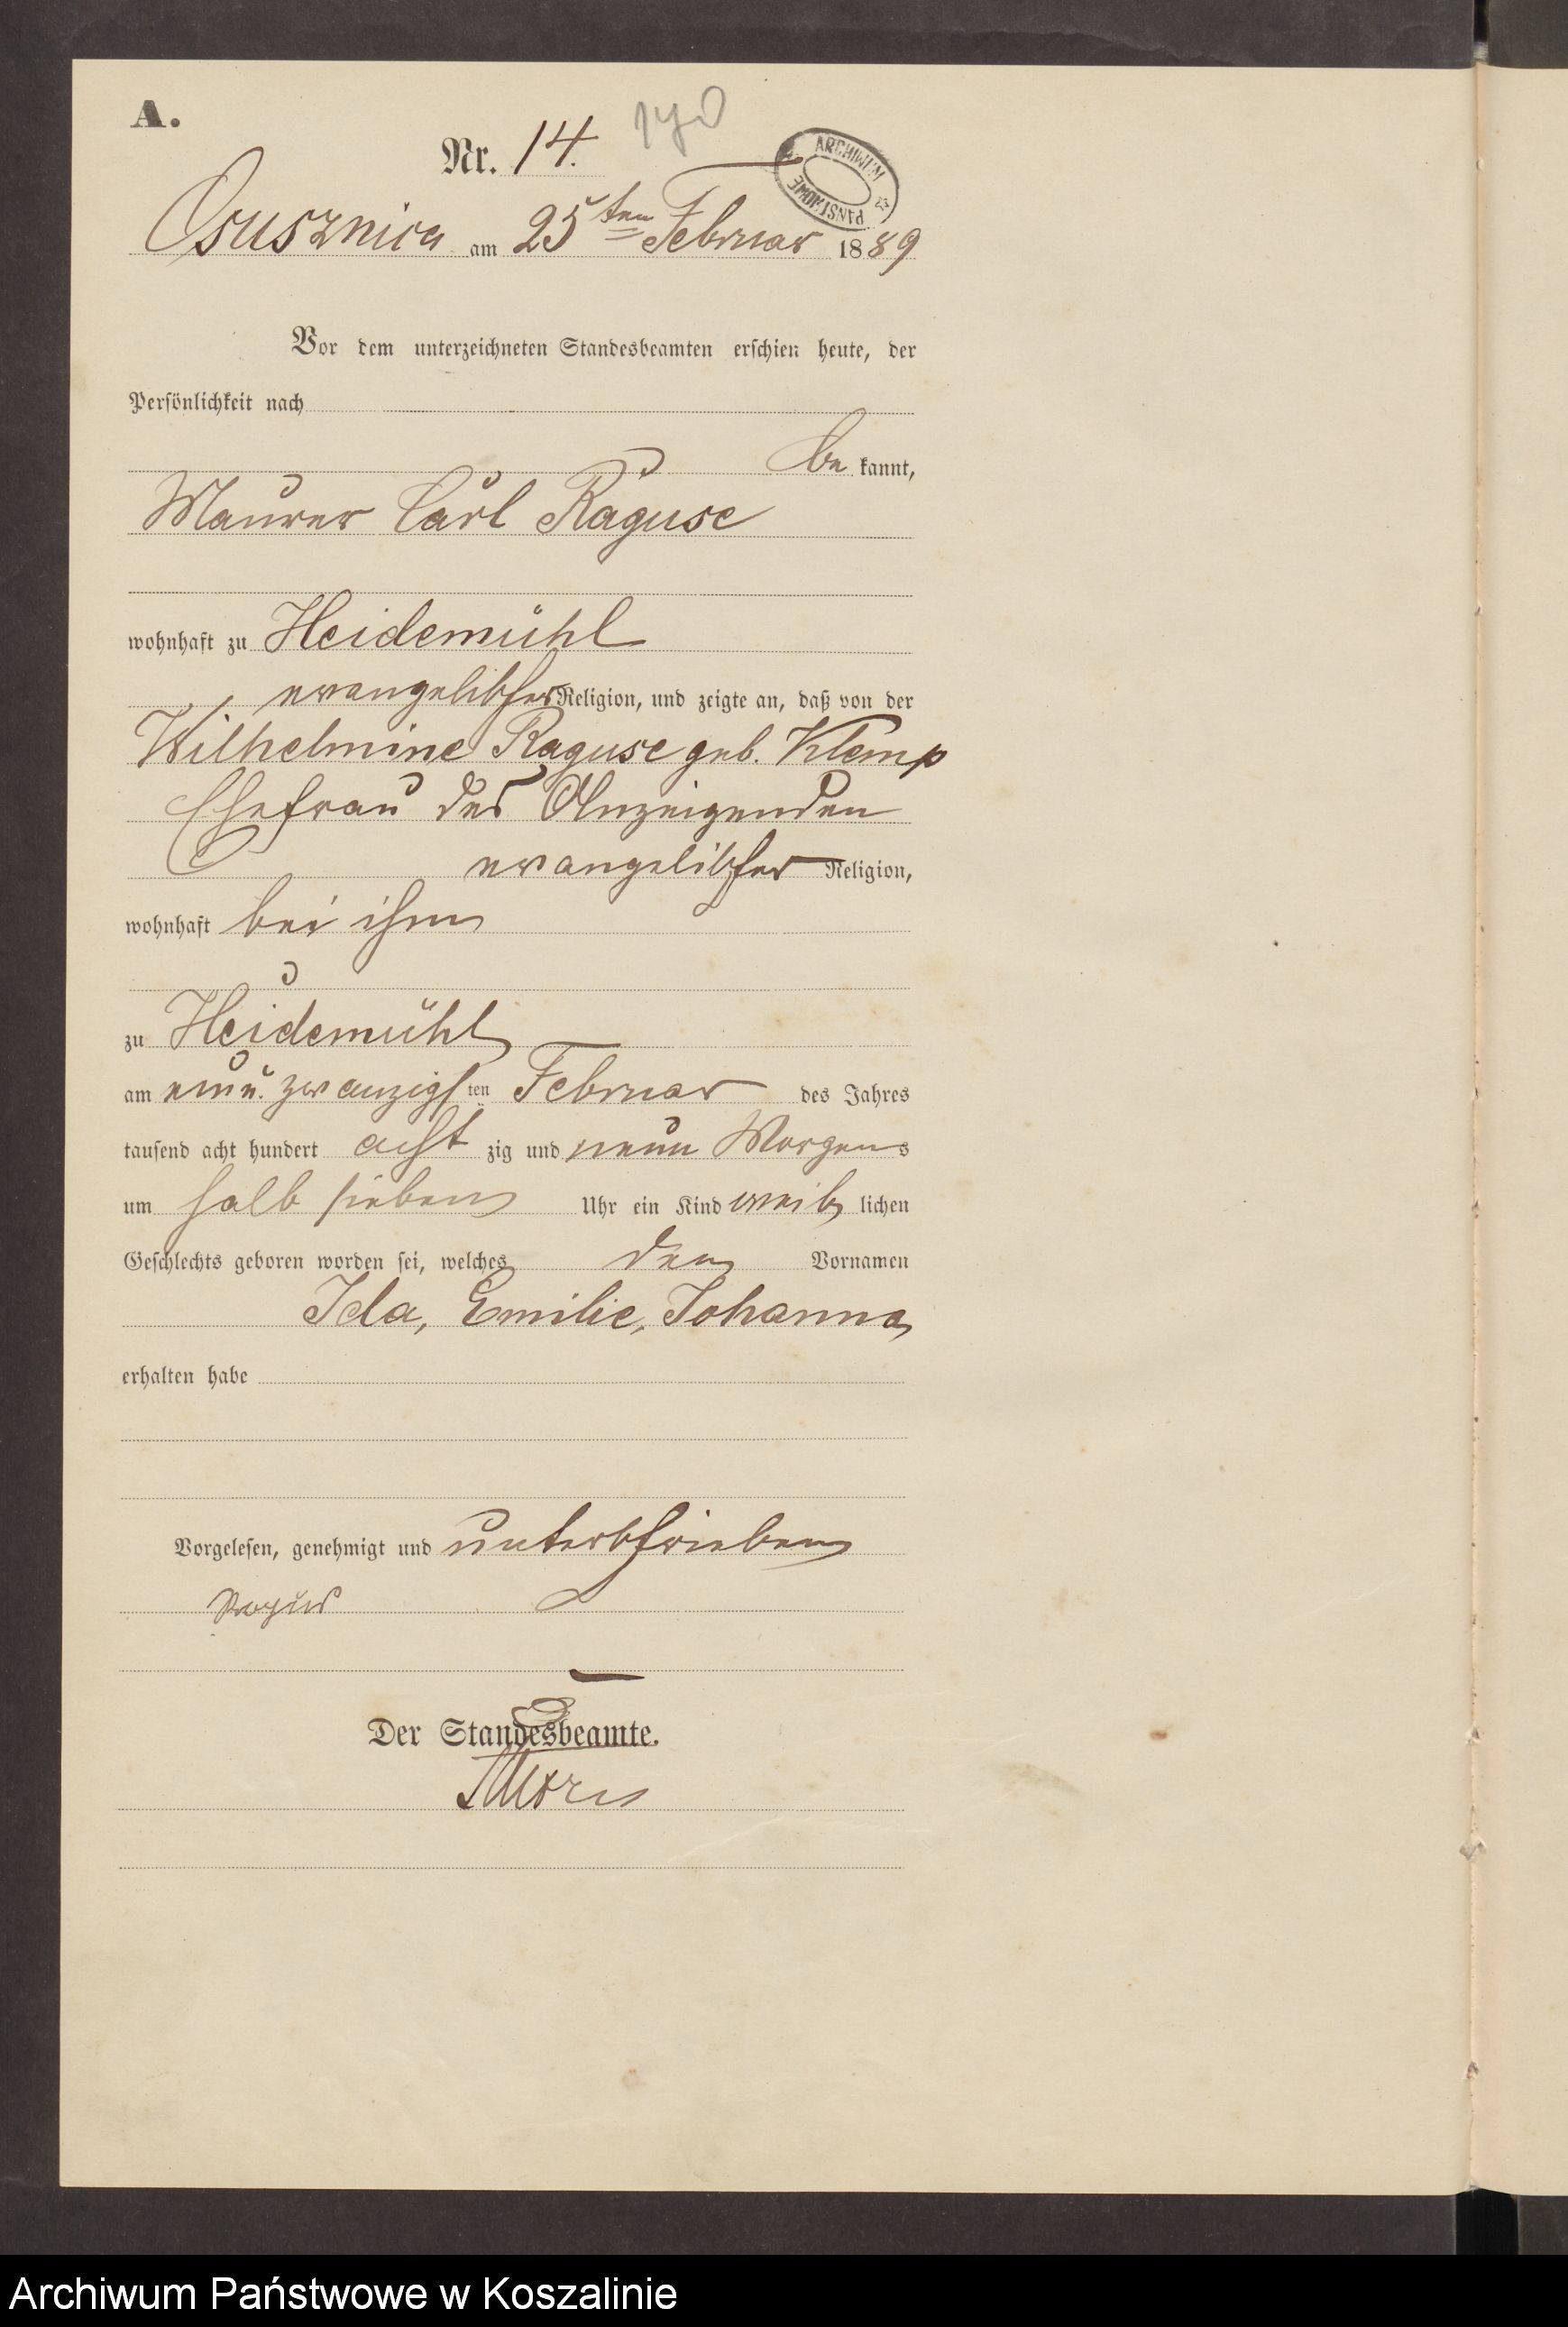 A.
Nr. 14.
ARCHIWUM PAŃSTWOWE
Osusznica am 25ten Februar 1889
Vor dem unterzeichneten Standesbeamten erschien heute, der
Persönlichkeit nach
be kannt,
Maurer Carl Raguse
wohnhaft zu Heidemühl
evangelischer Religion, und zeigte an, daß von der
Wilhelmine Raguse geb. Klemp
Ehefrau des Anzeigenden
evangelischer Religion,
wohnhaft bei ihm
zu Heidemühl
am ein u. zwanzigsten Februar des Jahres
tausend acht hundert acht zig und neun Morgens
um halb sieben Uhr ein Kind weib lichen
Geschlechts geboren worden sei, welches den Vornamen
Ida, Emilie, Johanna
erhalten habe
Vorgelesen, genehmigt und unterschrieben
Der Standesbeamte.
Archiwum Państwowe w Koszalinie